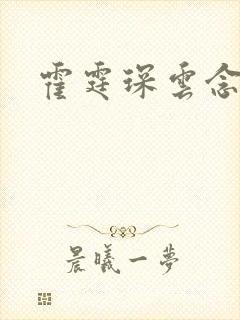 霍霆琛雲念
晨曦一夢